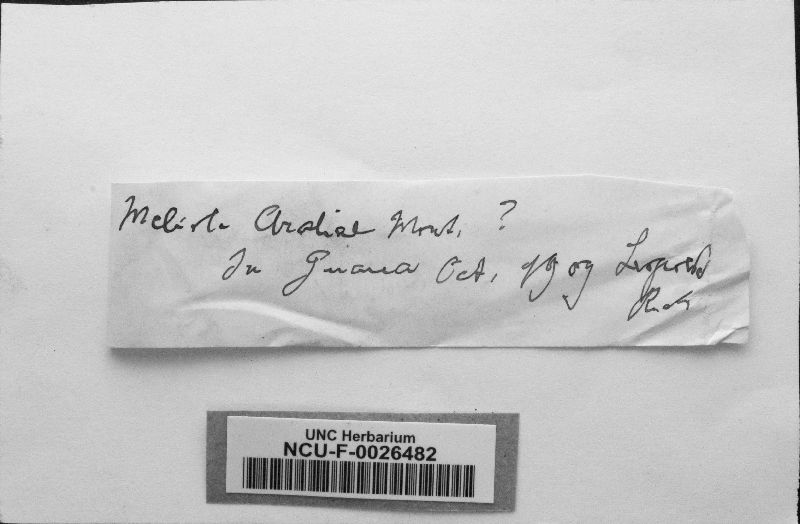 Meliola Araliae Mont. ?
In Guiana Oct. 1909 Leopold
UNC Herbarium
NCU-F-0026482